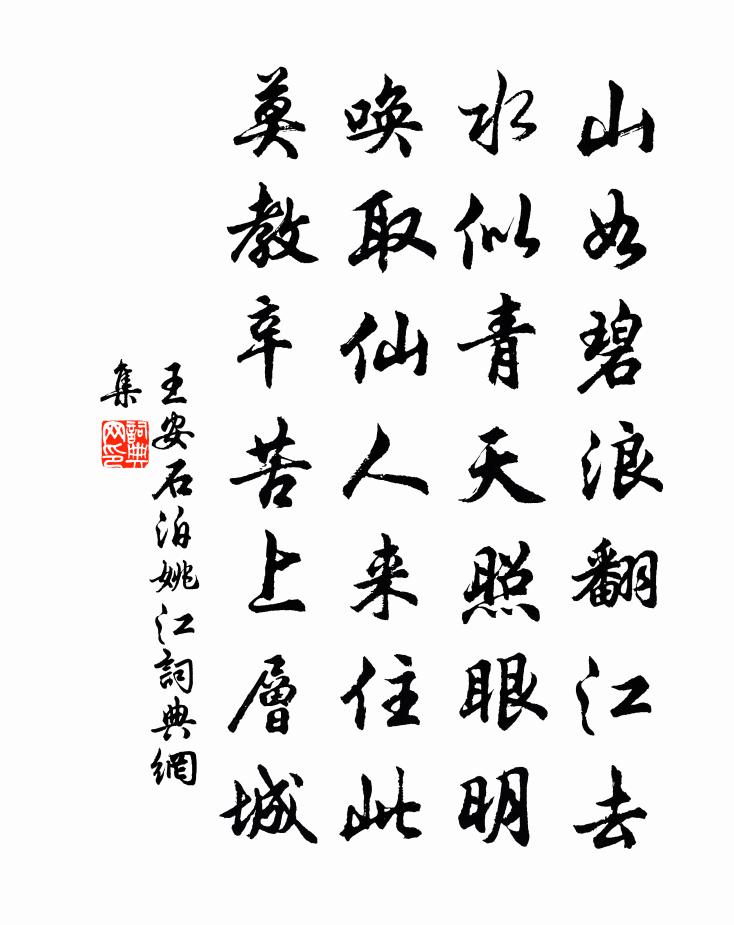 山如碧浪翻江去
水似青天照眼明
唤取仙人来住此
莫教辛苦上層城
王安石泊姚江詞典網
集
詞典
网印